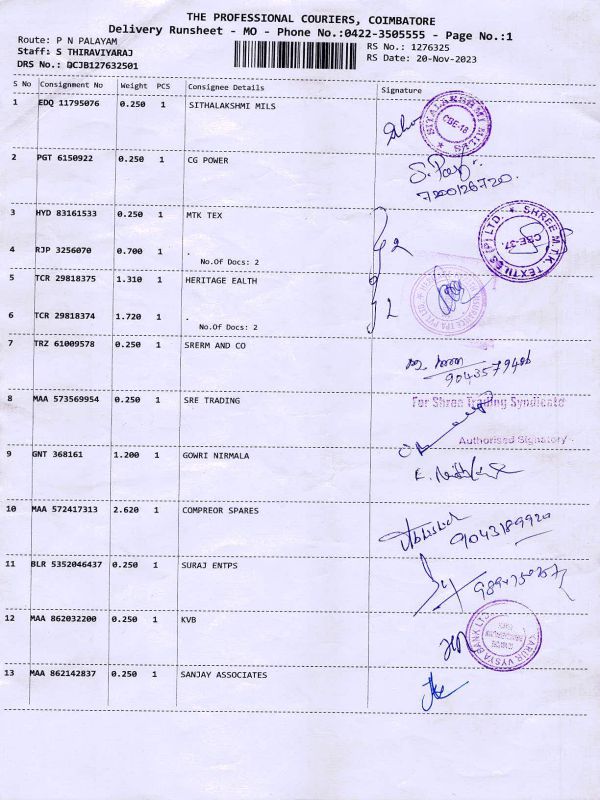 THE PROFESSIONAL COURIERS, COIMBATORE
Delivery Runsheet - MO - Phone No.:0422-3505555 - Page No.:1
Route: P N PALAYAM
Staff: S THIRAVIYARAJ
DRS No.: QCJB127632501
RS No.: 1276325
RS Date: 20-Nov-2023
S No Consignment No Weight PCS Consignee Details Signature
1 EDQ 11795076 0.250 1 SITHALAKSHMI MILS
CBE-18
2 PGT 6150922 0.250 1 CG POWER
7200126720.
3 HYD 83161533 0.250 1 MTK TEX
SHREE M.T.K. TEXTILES (P) LTD. CBE-37.
4 RJP 3256070 0.700 1 .
No.Of Docs: 2
2
5 TCR 29818375 1.310 1 HERITAGE EALTH
6 TCR 29818374 1.720 1 .
No.Of Docs: 2
2
7 TRZ 61009578 0.250 1 SRERM AND CO
8 MAA 573569954 0.250 1 SRE TRADING
For Shree Trading Syndicate
Authorised Signatory
9 GNT 368161 1.200 1 GOWRI NIRMALA
10 MAA 572417313 2.620 1 COMPREOR SPARES
Abhishek
9043189920
11 BLR 5352046437 0.250 1 SURAJ ENTPS
12 MAA 862032200 0.250 1 KVB
KARUR VYSYA BANK LTD
13 MAA 862142837 0.250 1 SANJAY ASSOCIATES